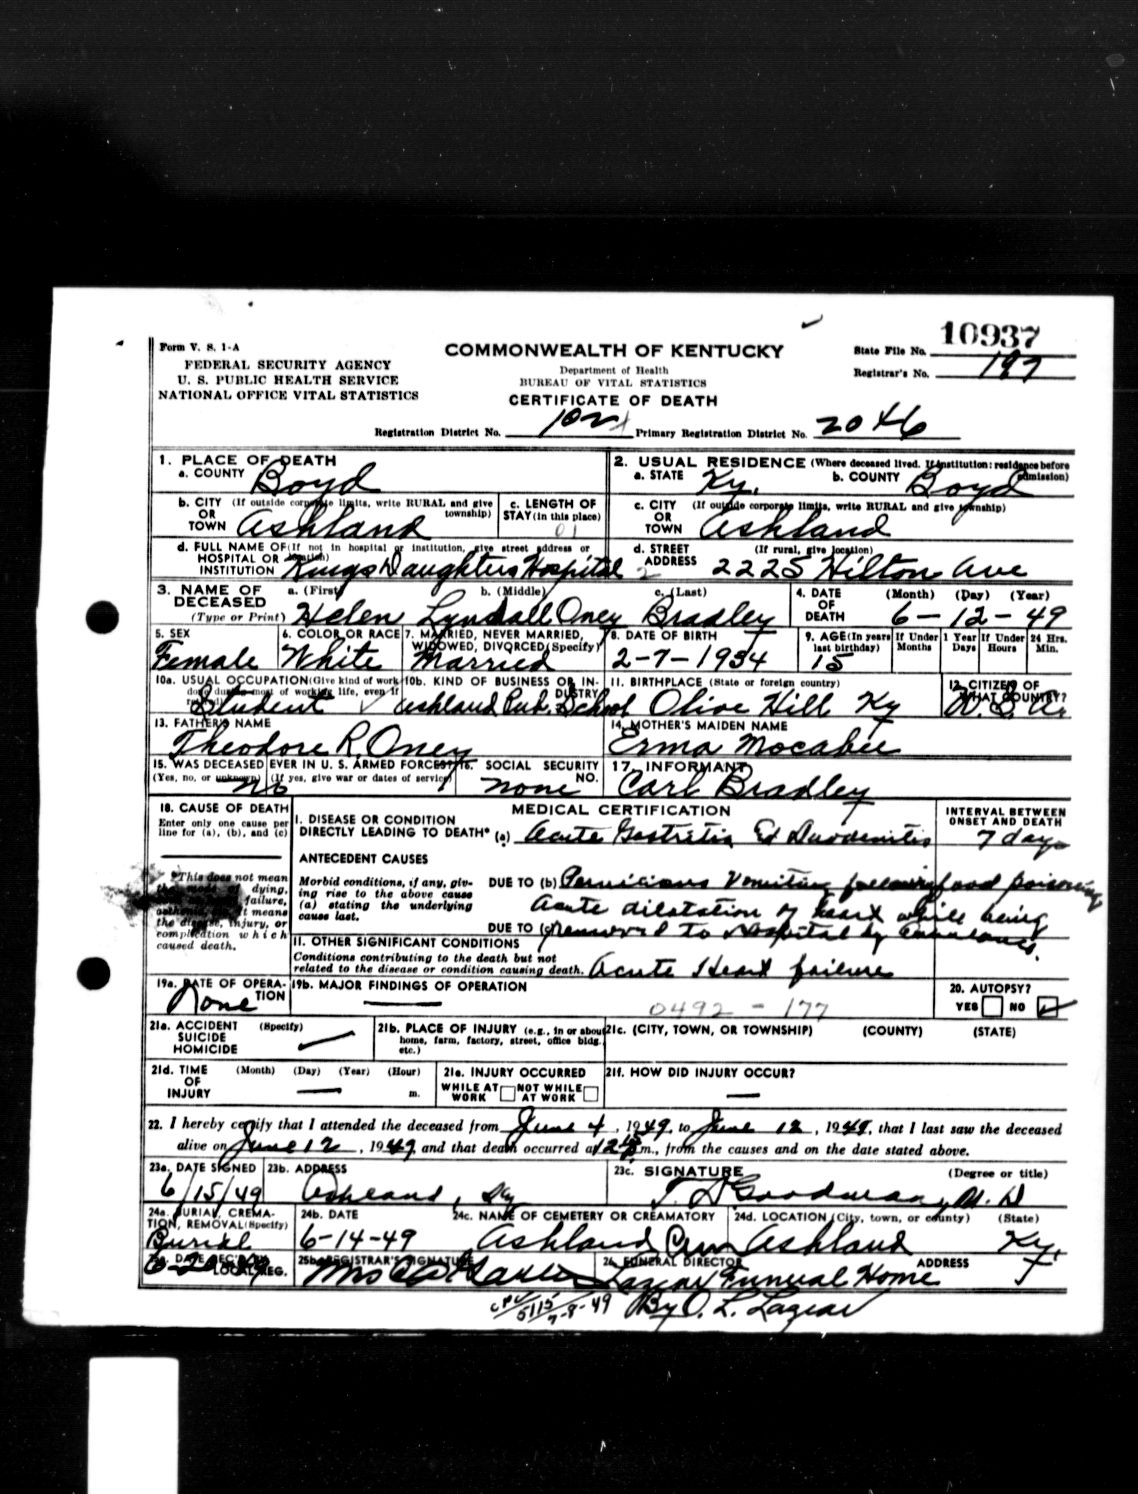 10937
Form V. S. 1-A
COMMONWEALTH OF KENTUCKY
State File No.
FEDERAL SECURITY AGENCY
Department of Health
Registrar's No. 197
U. S. PUBLIC HEALTH SERVICE
BUREAU OF VITAL STATISTICS
NATIONAL OFFICE VITAL STATISTICS
CERTIFICATE OF DEATH
Registration District No. 102 Primary Registration District No. 2046
1. PLACE OF DEATH
a. COUNTY Boyd
2. USUAL RESIDENCE (Where deceased lived. If institution: residence before admission)
a. STATE Ky. b. COUNTY Boyd
b. CITY (If outside corporate limits, write RURAL and give township)
OR TOWN Ashland
c. LENGTH OF STAY (in this place)
c. CITY (If outside corporate limits, write RURAL and give township)
OR TOWN Ashland
d. FULL NAME OF (If not in hospital or institution, give street address or location)
HOSPITAL OR INSTITUTION Kings Daughters Hospital
d. STREET ADDRESS (If rural, give location) 2225 Hilton Ave
3. NAME OF DECEASED (Type or Print) a. (First) b. (Middle) c. (Last)
Helen Lyndall Oney Bradley
4. DATE OF DEATH (Month) (Day) (Year)
6-12-49
5. SEX
Female
6. COLOR OR RACE
White
7. MARRIED, NEVER MARRIED, WIDOWED, DIVORCED (Specify)
Married
8. DATE OF BIRTH
2-7-1934
9. AGE (In years last birthday) 15
If Under 1 Year Months Days
If Under 24 Hrs. Hours Min.
10a. USUAL OCCUPATION (Give kind of work done during most of working life, even if retired)
Student
10b. KIND OF BUSINESS OR INDUSTRY
Ashland Pub. School
11. BIRTHPLACE (State or foreign country)
Olive Hill Ky
12. CITIZEN OF WHAT COUNTRY?
U. S. A.
13. FATHER'S NAME
Theodore R. Oney
14. MOTHER'S MAIDEN NAME
Erma Mocabee
15. WAS DECEASED EVER IN U. S. ARMED FORCES?
(Yes, no, or unknown) (If yes, give war or dates of service)
no
16. SOCIAL SECURITY NO.
none
17. INFORMANT
Carl Bradley
18. CAUSE OF DEATH
Enter only one cause per line for (a), (b), and (c)
MEDICAL CERTIFICATION
INTERVAL BETWEEN ONSET AND DEATH
I. DISEASE OR CONDITION
DIRECTLY LEADING TO DEATH* (a) Acute Gastritis Duodenitis 7 days
ANTECEDENT CAUSES
*This does not mean the mode of dying, failure, it means the disease, injury, or complication which caused death.
Morbid conditions, if any, giving rise to the above cause (a) stating the underlying cause last.
DUE TO (b) Pernicious Vomiting following food poisoning
Acute dilatation of heart while being
DUE TO (c) removed to Hospital by Ambulance.
II. OTHER SIGNIFICANT CONDITIONS
Conditions contributing to the death but not related to the disease or condition causing death. Acute Heart failure
19a. DATE OF OPERATION
None
19b. MAJOR FINDINGS OF OPERATION
0492 - 177
20. AUTOPSY?
YES NO
21a. ACCIDENT SUICIDE HOMICIDE (Specify)
21b. PLACE OF INJURY (e.g., in or about home, farm, factory, street, office bldg. etc.)
21c. (CITY, TOWN, OR TOWNSHIP) (COUNTY) (STATE)
21d. TIME OF INJURY (Month) (Day) (Year) (Hour) m.
21e. INJURY OCCURRED
WHILE AT WORK NOT WHILE AT WORK
21f. HOW DID INJURY OCCUR?
22. I hereby certify that I attended the deceased from June 4, 1949, to June 12, 1949, that I last saw the deceased
alive on June 12, 1949, and that death occurred at m., from the causes and on the date stated above.
23a. DATE SIGNED
6/15/49
23b. ADDRESS
Ashland, Ky
23c. SIGNATURE (Degree or title)
Goodman, M. D
24a. BURIAL, CREMATION, REMOVAL (Specify)
Burial
24b. DATE
6-14-49
24c. NAME OF CEMETERY OR CREAMATORY
Ashland Cem
24d. LOCATION (City, town, or county) (State)
Ashland Ky.
25a. DATE REC'D BY LOCAL REG.
25b. REGISTRAR'S SIGNATURE
Mrs
26. FUNERAL DIRECTOR ADDRESS
Lazear Funeral Home
By O. L. Lazear
7-8-49